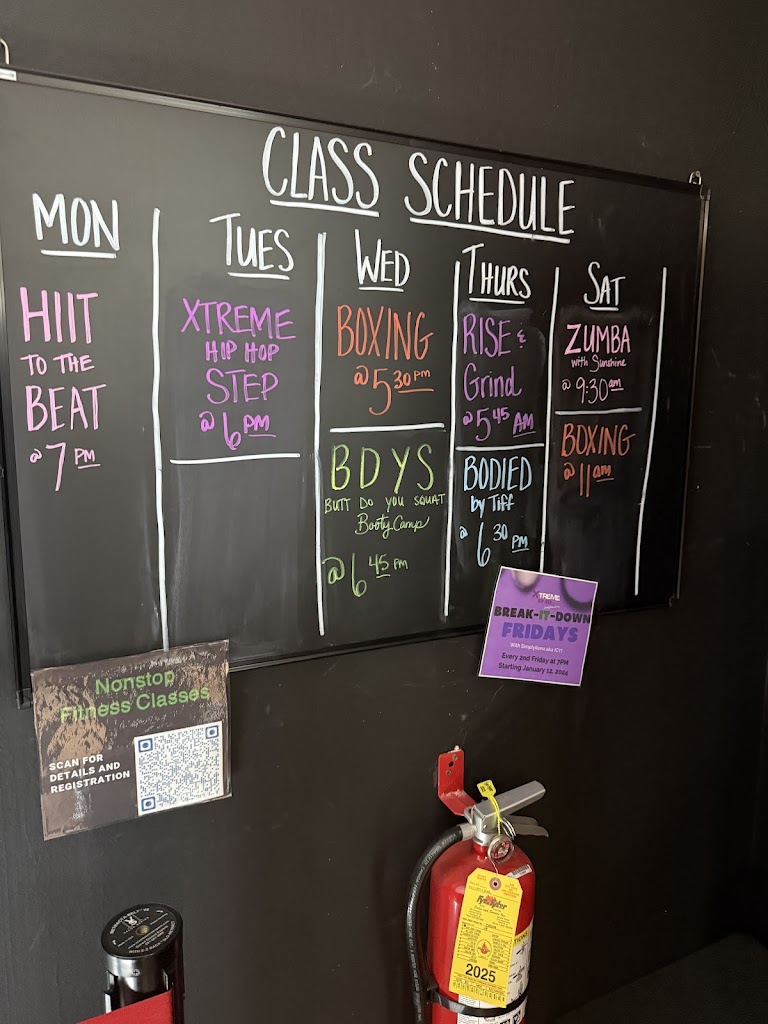 CLASS SCHEDULE
MON
HIIT
TO THE
BEAT
@ 7 PM
TUES
XTREME
HIP HOP
STEP
@ 6 PM
WED
BOXING
@ 5 30 PM
BDYS
BUTT DO YOU SQUAT
Booty Camp
@ 6 45 PM
THURS
RISE &
Grind
@ 5 45 AM
BODIED
by Tiff
@ 6 30 PM
SAT
ZUMBA
with Sunshine
@ 9:30 am
BOXING
@ 11 am
XTREME
BREAK-IT-DOWN
FRIDAYS
Every 2nd Friday at 7PM
Starting January 12, 2024
Nonstop
Fitness Classes
SCAN FOR
DETAILS AND
REGISTRATION
2025